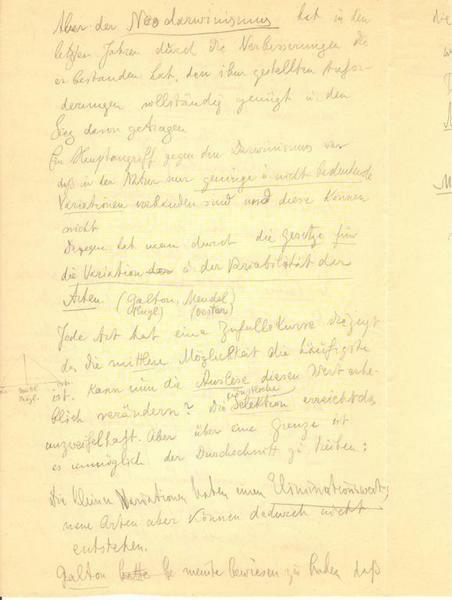 Aber der Neodarwinismus hat in den
letzten Jahren durch die Verbesserungen die
er bestanden hat, den ihm gestellten Anfor-
derungen vollständig genügt u. den
Sieg davon getragen
Ein Hauptangriff gegen den Darwinismus war
daß in der Natur nur geringe u. nicht bedeutende
Variationen vorhanden sind und diese können
nicht
Dagegen hat man durch die Gesetze für
die Variation u. der Variabilität der
Arten. (Galton, Mendel)
(Engl.) (Oester)
Jede Art hat eine Zufallskurve die zeigt
das die mittlere Möglichkeit die häufigste
ist. Kann nun die Auslese diesen Wert erhe-
blich verändern? Die künstliche Selektion erreicht das
unzweifelhaft. Aber über eine Grenze ist
es unmöglich der Durchschnitt zu treiben:
Die kleinen Variationen haben einen Eliminationswert,
neue Arten aber können dadurch nicht
entstehen.
Galton hatte Er meinte bewiesen zu haben daß